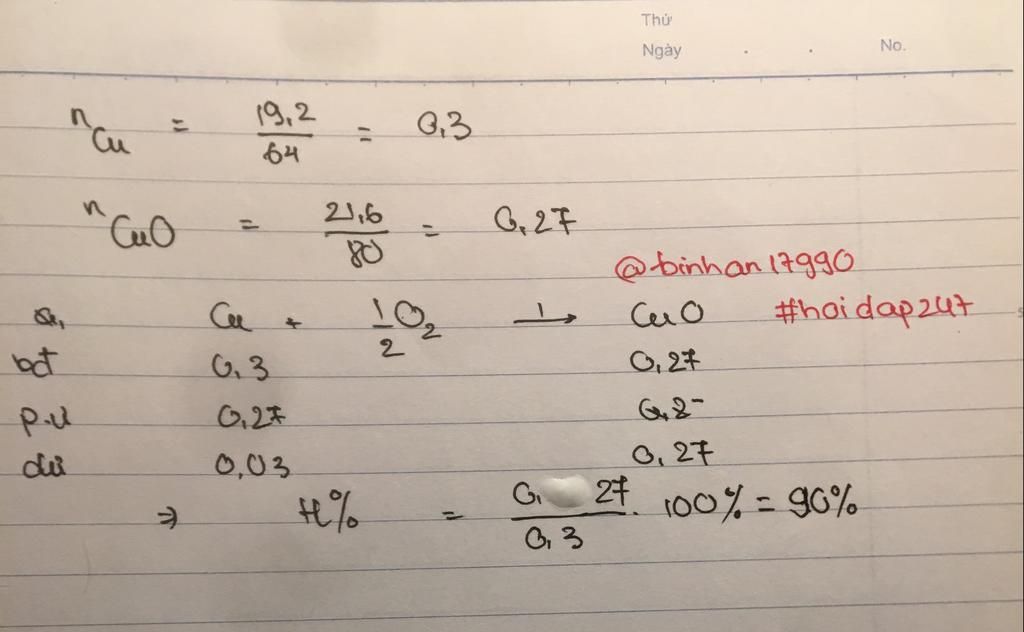 Thứ
Ngày . . No.
nCu = 19,2/64 = 0,3
nCuO = 21,6/80 = 0,27
@binhan17990
Cu + 1/2 O2 → CuO #hoidap247
bđ 0,3 0,27
p.ư 0,27
dư 0,03 0,27
⇒ H% = 0, 27/0,3 . 100% = 90%